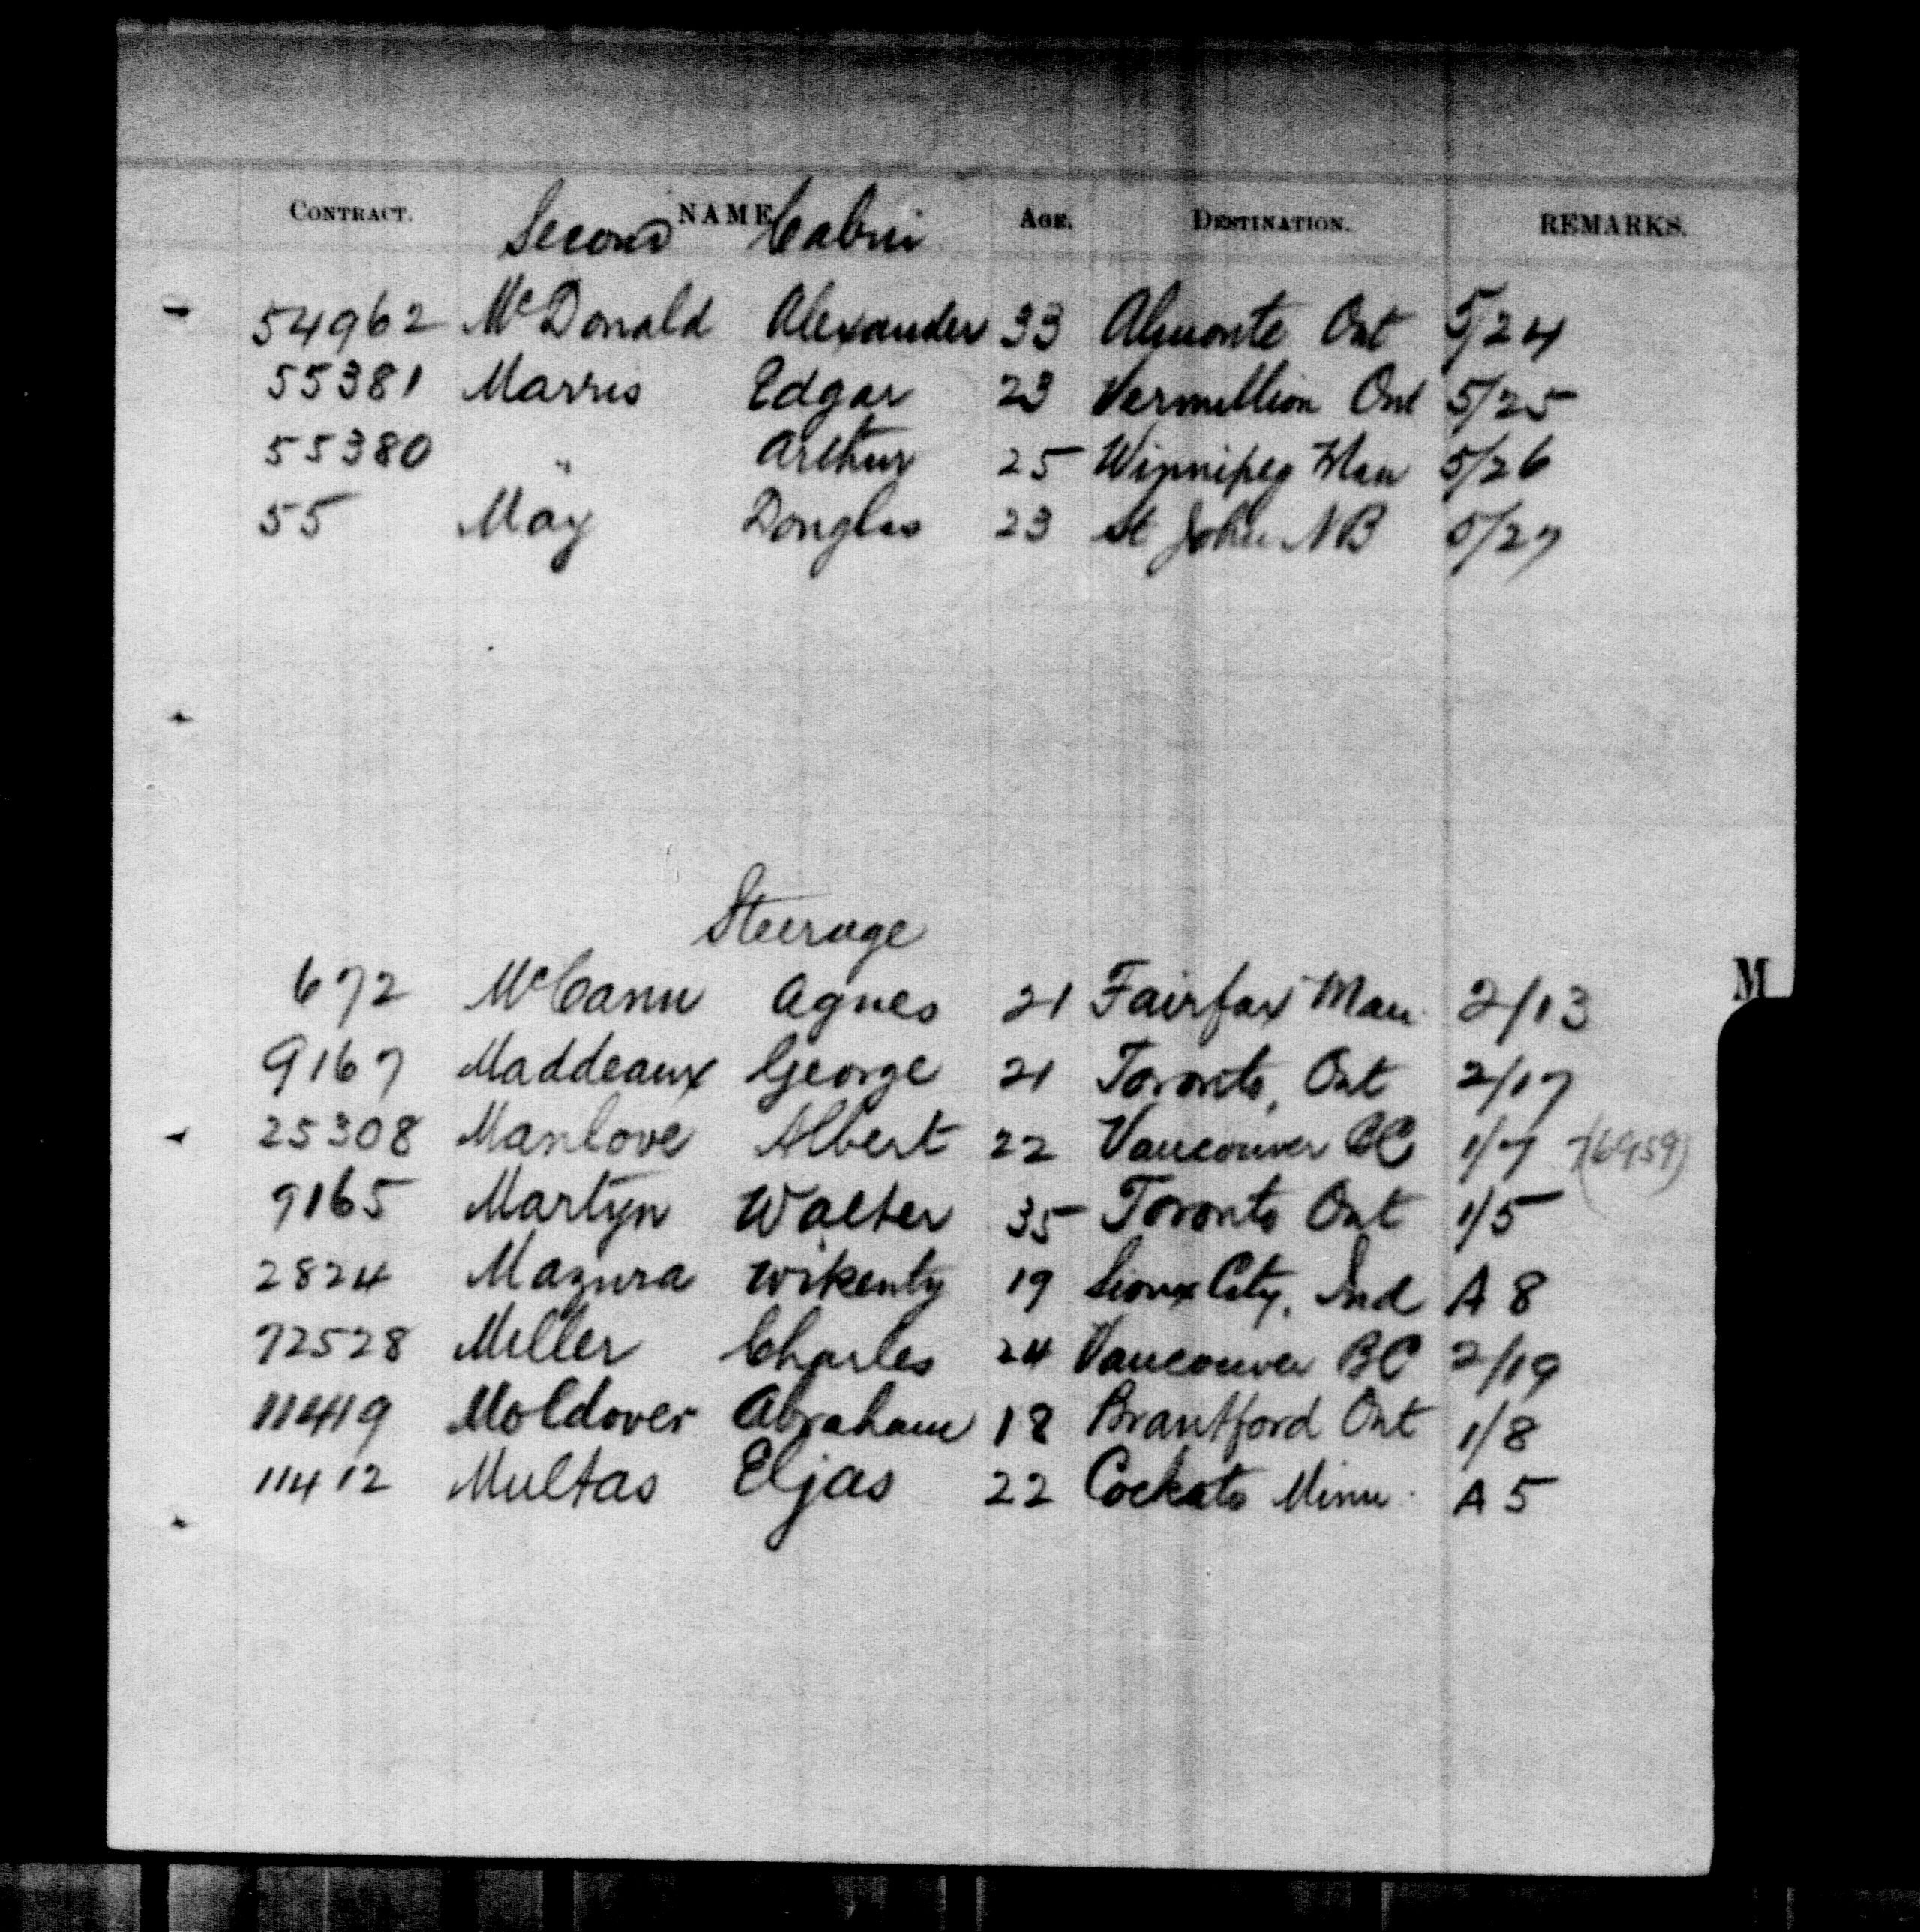 CONTRACT. NAME AGE. DESTINATION. REMARKS.
Second Cabin
54962 McDonald Alexander 33 Almonte Ont 5/24
55381 Marris Edgar 23 Vermillion Ont 5/25
55380 " Arthur 25 Winnipeg Man 5/26
55 May Douglas 23 St John NB 5/27
Steerage
M
672 McCann Agnes 21 Fairfax Man. 2/13
9167 Maddeaux George 21 Toronto, Ont 2/17
25308 Manlove Albert 22 Vancouver BC 1/7
9165 Martyn Walter 35 Toronto Ont 1/5
2824 Mazura Wikenty 19 Sioux City, Ind A 8
72528 Miller Charles 24 Vancouver BC 2/19
11419 Moldover Abraham 18 Brantford Ont 1/8
11412 Multas Eljas 22 Cockato Minn. A 5